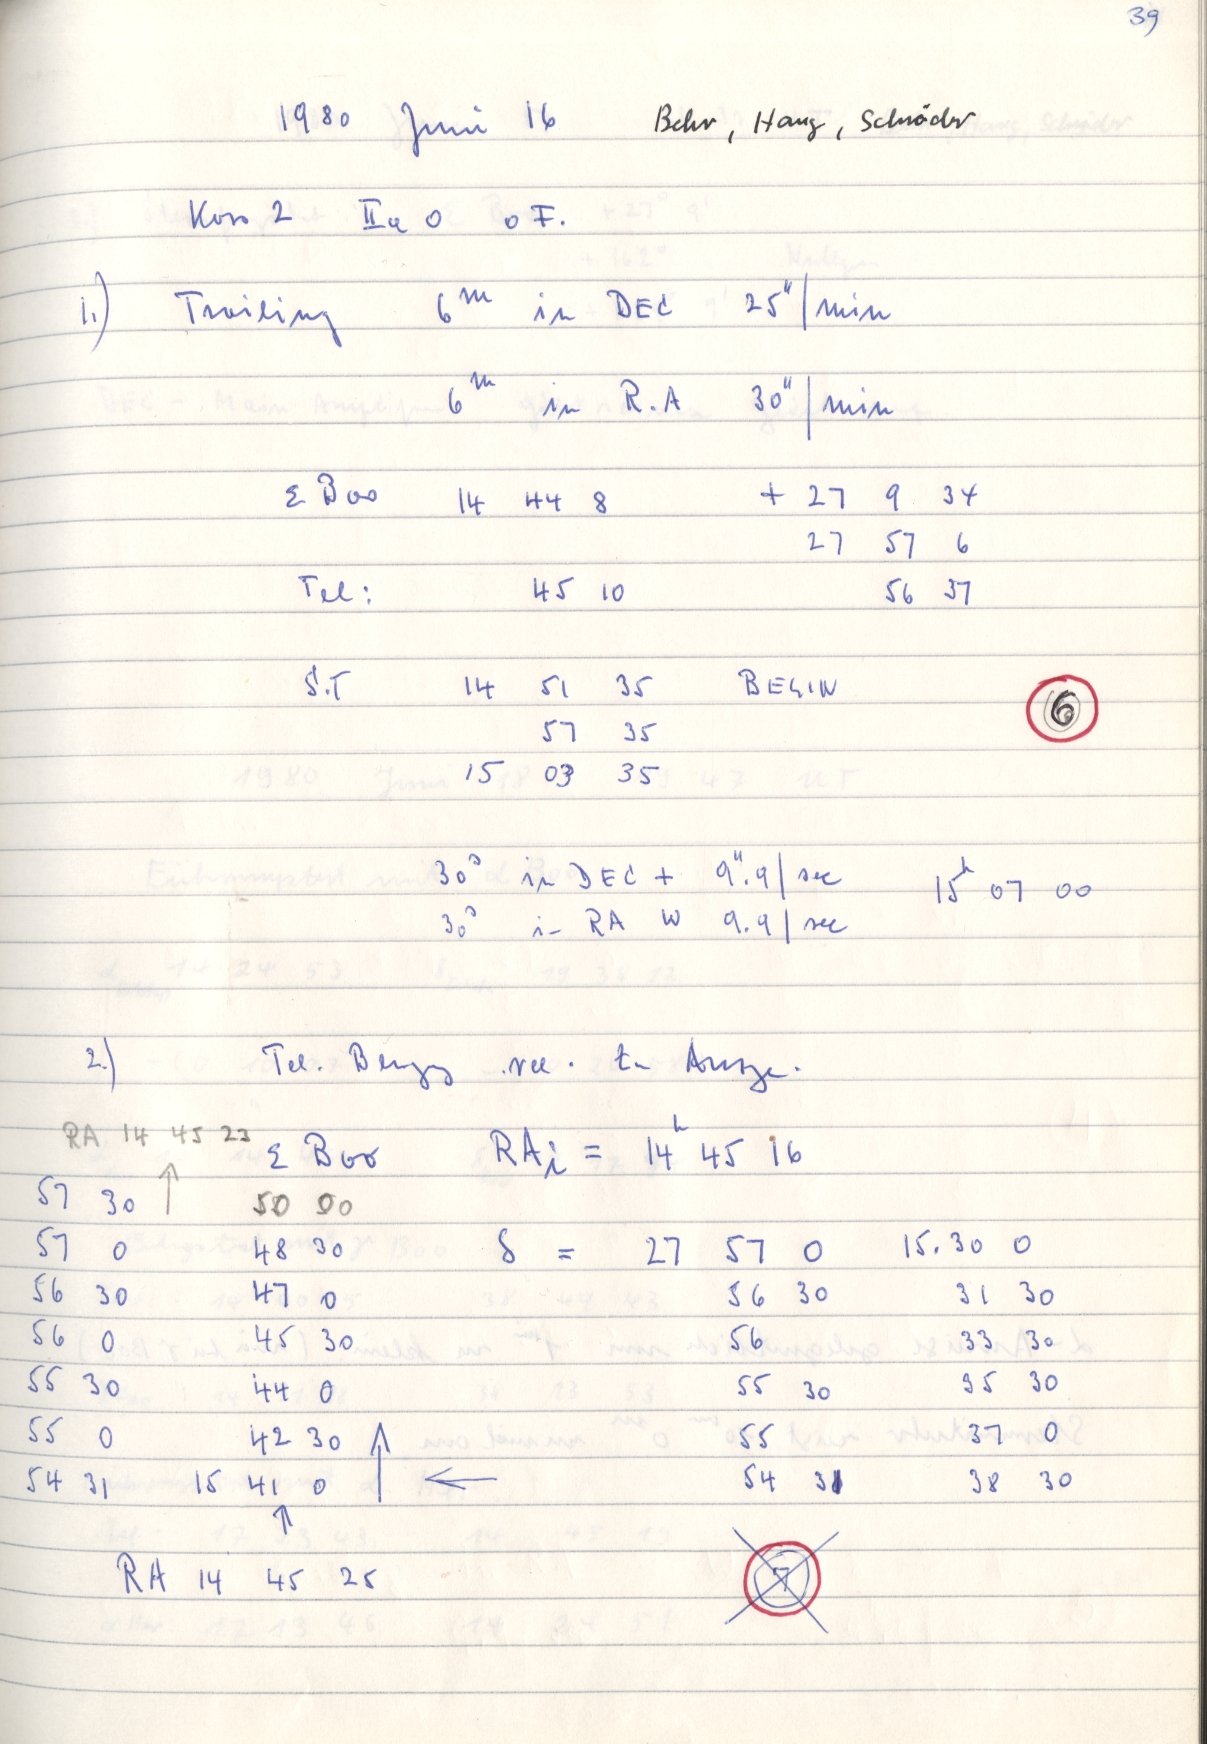 39
1980 Juni 16 Behr, Haug, Schröder
Koro 2 IIa O oF.
1.) Trailing 6ᵐ in DEC 25"/min
6ᵐ in R.A 30"/min
ε Boo 14 44 8 + 27 9 34
27 57 6
Tel: 45 10 56 37
S.T 14 51 35 BEGIN
6
57 35
15 03 35
30ˢ in DEC + 9".9/sec 15ʰ 07 00
30ˢ in RA W 9.9/sec
2.) Tel. Bewgg rel. zu Anzge.
RA 14 45 23
ε Boo RAi = 14ʰ 45 16
57 30 50 00
57 0 48 30 δ = 27 57 0 15.30 0
56 30 47 0 56 30 31 30
56 0 45 30 56 33 30
55 30 44 0 55 30 35 30
55 0 42 30 55 37 0
54 31 15 41 0 54 31 38 30
RA 14 45 25 7